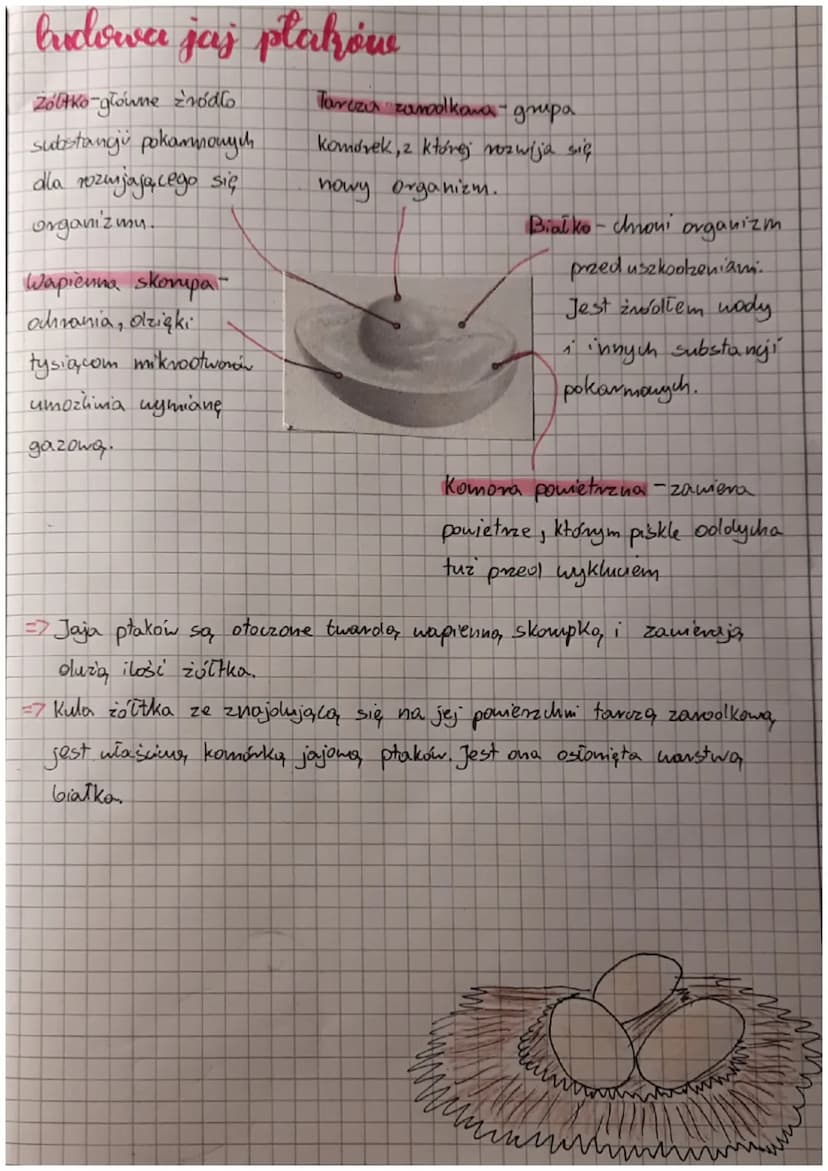 budowa jaj ptaków
Żółtko-główne źródło
substancji pokarmowych
dla rozwijającego się
organizmu.
Tarcza zarodkowa - grupa
komórek, z której rozwija się
nowy organizm.
Białko - chroni organizm
przed uszkodzeniami.
Jest źródłem wody
i innych substancji
pokarmowych.
Wapienna skorupa -
ochrania, dzięki
tysiącom mikrootworów
umożliwia wymianę
gazową.
Komora powietrzna - zawiera
powietrze, którym pisklę oddycha
tuż przed wykluciem
=> Jaja ptaków są otoczone twardą, wapienną skorupką i zawierają
dużą ilość żółtka.
=> Kula żółtka ze znajdującą się na jej powierzchni tarczą zarodkową,
jest właściwą komórką jajową ptaków. Jest ona osłonięta warstwą
białka.